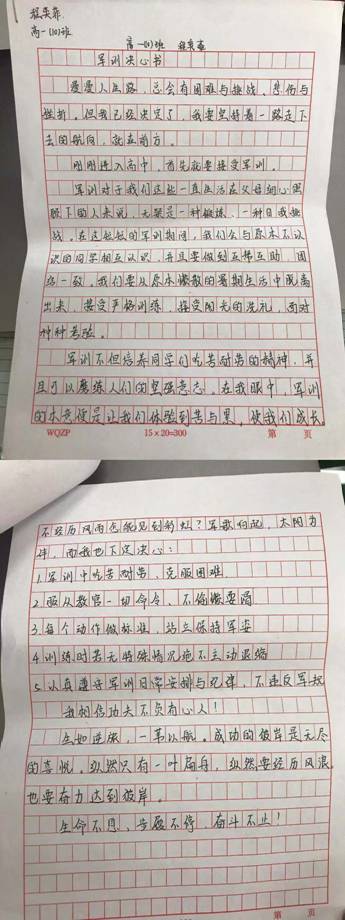 高一(10)班
高一(10)班
军训决心书
漫漫人生路，总会有困难与挑战、悲伤与
挫折。但我已经决定了，我要坚持着一路走下
去的航向，就在前方。
刚刚进入高中，首先就要接受军训。
军训对于我们这些一直生活在父母细心照
顾下的人来说，无疑是一种锻炼，一种自我挑
战。在这短短的军训期间，我们会与原本不认
识的同学相互认识，并且要做到互帮互助，团
结一致。我们要从原本懒散的暑期生活中脱离
出来，接受严格训练，接受阳光的洗礼，面对
种种考验。
军训不但培养同学们吃苦耐劳的精神，并
且可以磨练人们的坚强意志。在我眼中，军训
的本意便是让我们体验到苦与累，使我们成长。
WQZP 15×20=300 第 页
不经历风雨怎能见到彩虹？军歌向起，太阳为
伴，而我也下定决心：
1.军训中吃苦耐劳、克服困难
2.服从教官一切命令、不偷懒耍滑
3.每个动作做标准，站立保持军姿
4.训练时若无特殊情况绝不主动退缩
5.认真遵守军训日常安排与纪律，不违反军规
我相信功夫不负有心人！
生如逆旅，一苇以航。成功的彼岸是无尽
的喜悦。纵然只有一叶扁舟，纵然要经历风浪，
也要奋力达到彼岸。
生命不息，步履不停，奋斗不止！
第 页